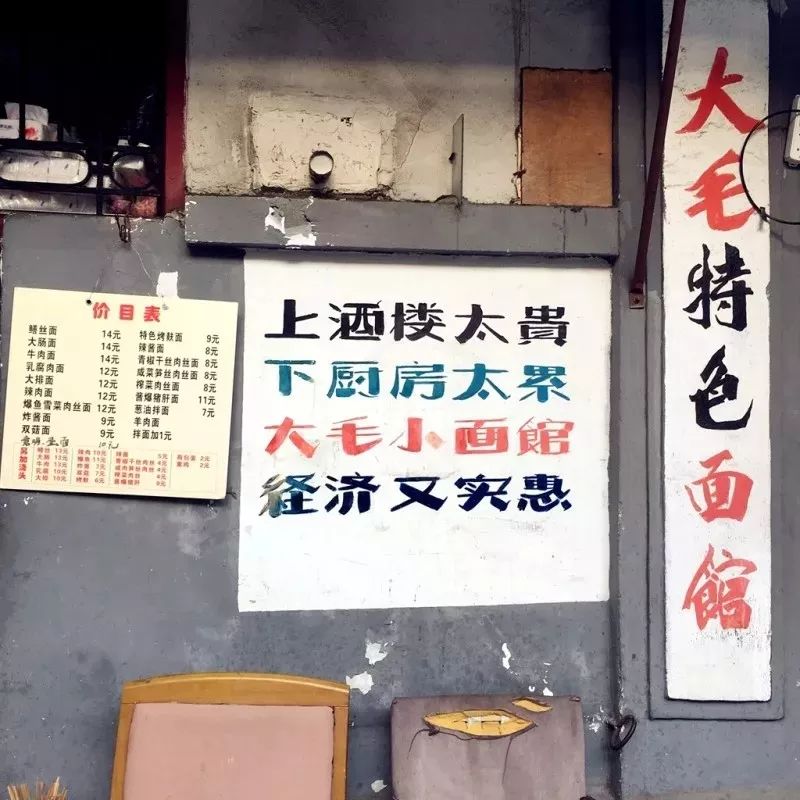 价目表
鳝丝面 14元 特色烤麸面 9元
大肠面 14元 辣酱面 8元
牛肉面 14元 青椒干丝肉丝面 8元
乳腐肉面 12元 咸菜笋丝肉丝面 8元
大排面 12元 榨菜肉丝面 8元
辣肉面 12元 酱爆猪肝面 11元
爆鱼雪菜肉丝面 12元 葱油拌面 7元
炸酱面 9元 羊肉面
双菇面 9元 拌面加1元
另加浇头
上酒楼太貴
下厨房太累
大毛小面館
经济又实惠
大毛特色面館